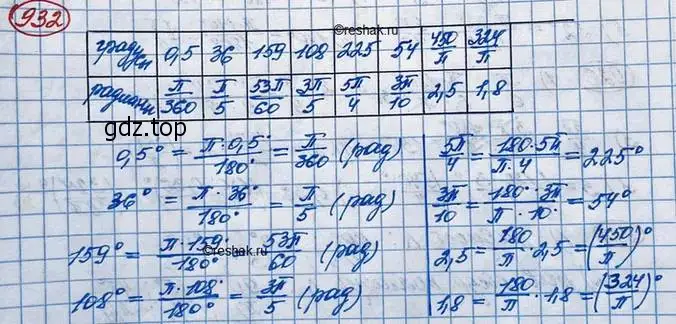 932
©reshak.ru
градусы 0,5 36 159 108 225 54 450/π 324/π
радианы π/360 π/5 53π/60 3π/5 5π/4 3π/10 2,5 1,8
gdz.top
0,5° = π·0,5°/180° = π/360 (рад)
36° = π·36°/180° = π/5 (рад)
159° = π·159°/180° = 53π/60 (рад)
©reshak.ru
108° = π·108°/180° = 3π/5 (рад)
5π/4 = 180·5π/π·4 = 225°
3π/10 = 180°·3π/π·10 = 54°
2,5 = 180/π · 2,5 = (450/π)°
1,8 = 180/π · 1,8 = (324/π)°